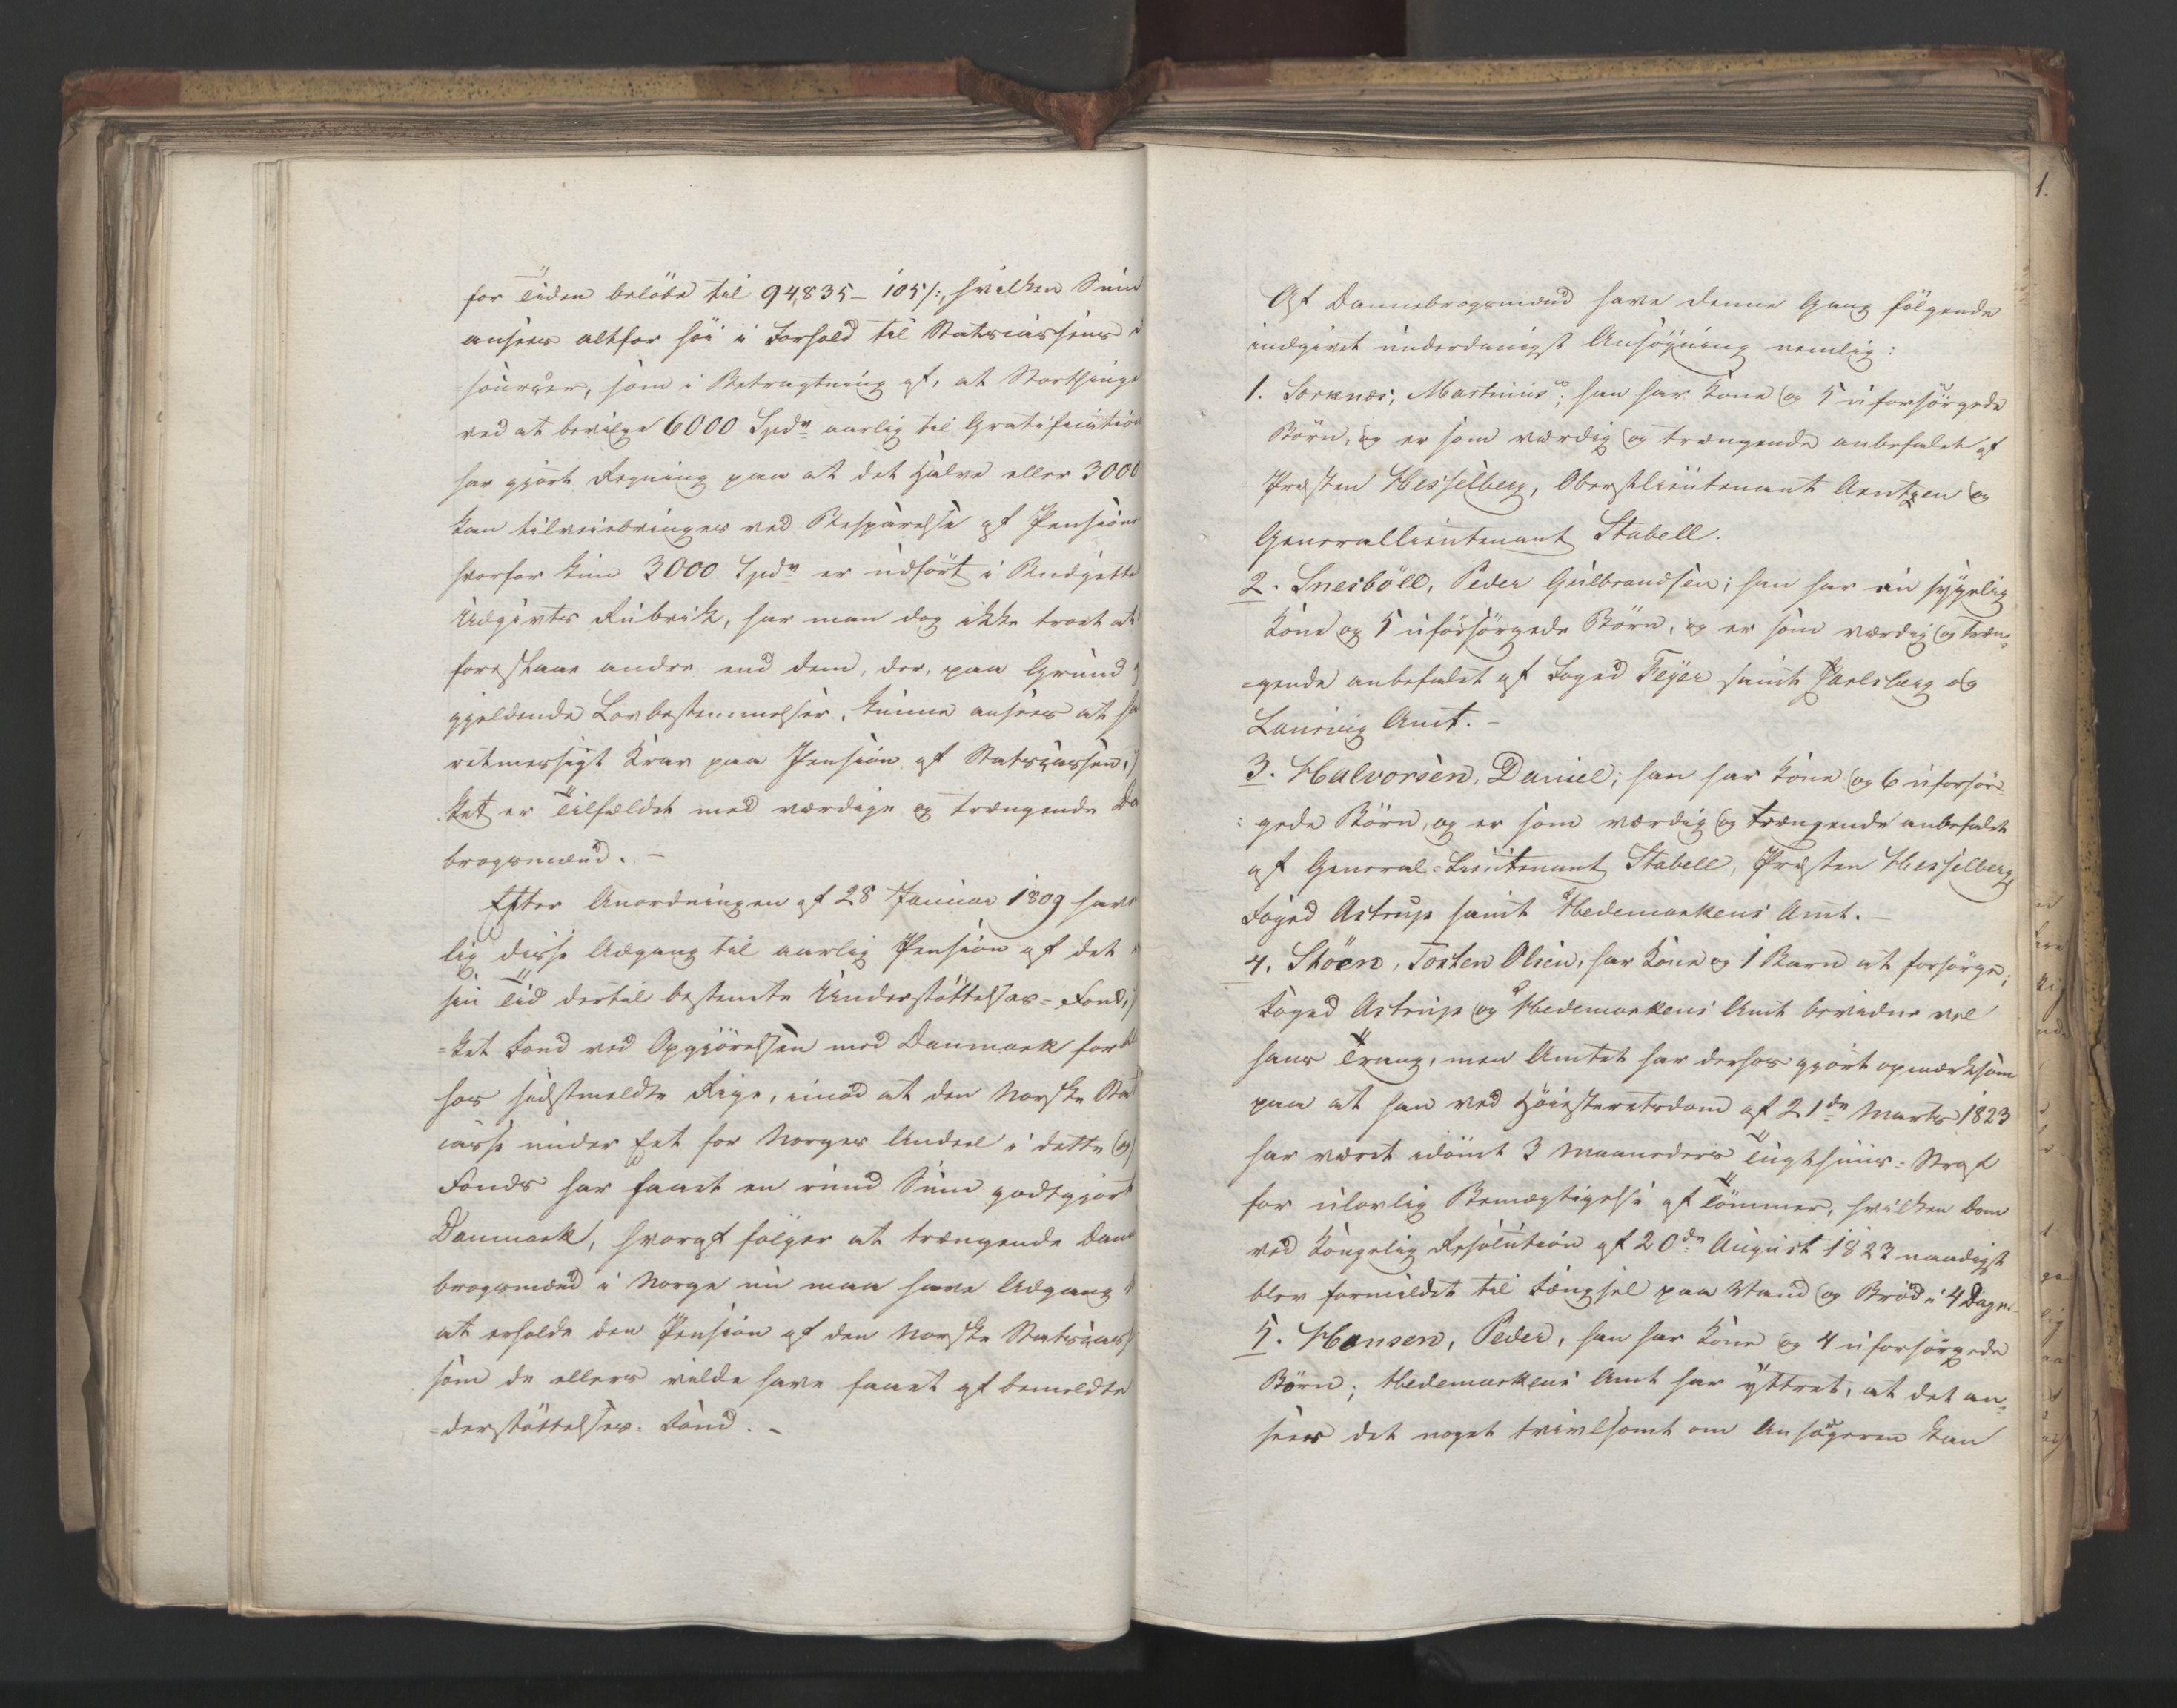 for Tiden beløbe til 94,835 – 105 /:, hvilken Sum
ansees altfor høi i Forhold til Statscassens
=sourcer, som i Betragtning af, at Storthinge
ved at bevilge 6000 Spdr aarlig til Gratification
har gjort Regning paa at det Halve eller 3000
kan tilveiebringes ved Besparelse af Pension
hvorfor kun 3000 Spdr er udført i Budgette
Udgivts Rubrik, har man dog ikke troet at
forestaae andre end dem, der, paa Grund
gjeldende Lovbestemmelser, kunne ansees at ha
retmessigt Krav paa Pension af Statscassen,
ket er Tilfældet med værdige og trængende Da
brogsmænd. –
Efter Anordningen af 28 Januar 1809 have
lig disse Adgang til aarlig Pension af det
sin Tid dertil bestemte Understøttelses=Fond,
=ket Fond ved Opgjørelsen med Danmark for
hos sidstmeldte Rige, imod at den Norske Sta
casse under Eet for Norges Andeel i dette og
Fonds har faaet en rund Sum godtgjort
Danmark, hvoraf følger at trængende Dan
brogsmænd i Norge nu maa have Adgang
at erholde den Pension af den Norske Statscass
som de ellers vilde have faaet af bemeldte
=derstøttelses=Fond. –
1.
Af Dannebrogsmænd have denne Gang følgende
indgivet underdanigst Ansøgning nemlig:
1. Sorknes, Martinus; han har Kone og 5 uforsørgede
Børn, og er som værdig og trængende anbefalet af
Præsten Hesselberg, Oberstlieutenant Arntzen og
Generallieutenant Stabell.
2. Snesbøll, Peder Gulbrandsen; han har en sygelig
Kone og 5 uforsørgede Børn, og er som værdig og træn=
=gende anbefalet af Foged Feyer samt Jarlsberg og
Laurvig Amt. –
3. Halvorsen, Daniel; han har Kone og 6 uforsør=
=gede Børn, og er som værdig og trængende anbefalet
af General=Lieutenant Stabell, Præsten Hesselberg,
Foged Astrup samt Hedemarkens Amt. –
4. Støen, Tosten Olsen, har Kone og 1 Barn at forsørge;
Foged Astrup og Hedemarkens Amt bevidne vel
hans Trang, men Amtet har derhos gjort opmærksom
paa at han ved Høiesteretsdom af 21de Marts 1823
har været idømt 3 Maaneders Tugthuus=Straf
for ulovlig Bemægtigelse af Tømmer, hvilken Dom
ved Kongelig Resolution af 20de August 1823 naadigst
blev formildet til Fængsel paa Vand og Brød i 4 Dage. –
5. Hansen, Peder, han har Kone og 4 uforsørgede
Børn; Hedemarkens Amt har yttret, at det an=
sees det noget tvivlsomt om Ansøgeren kan